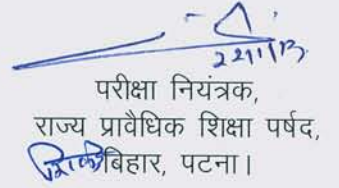 22/1/13
परीक्षा नियंत्रक,
राज्य प्रावैधिक शिक्षा पर्षद,
बिहार, पटना।